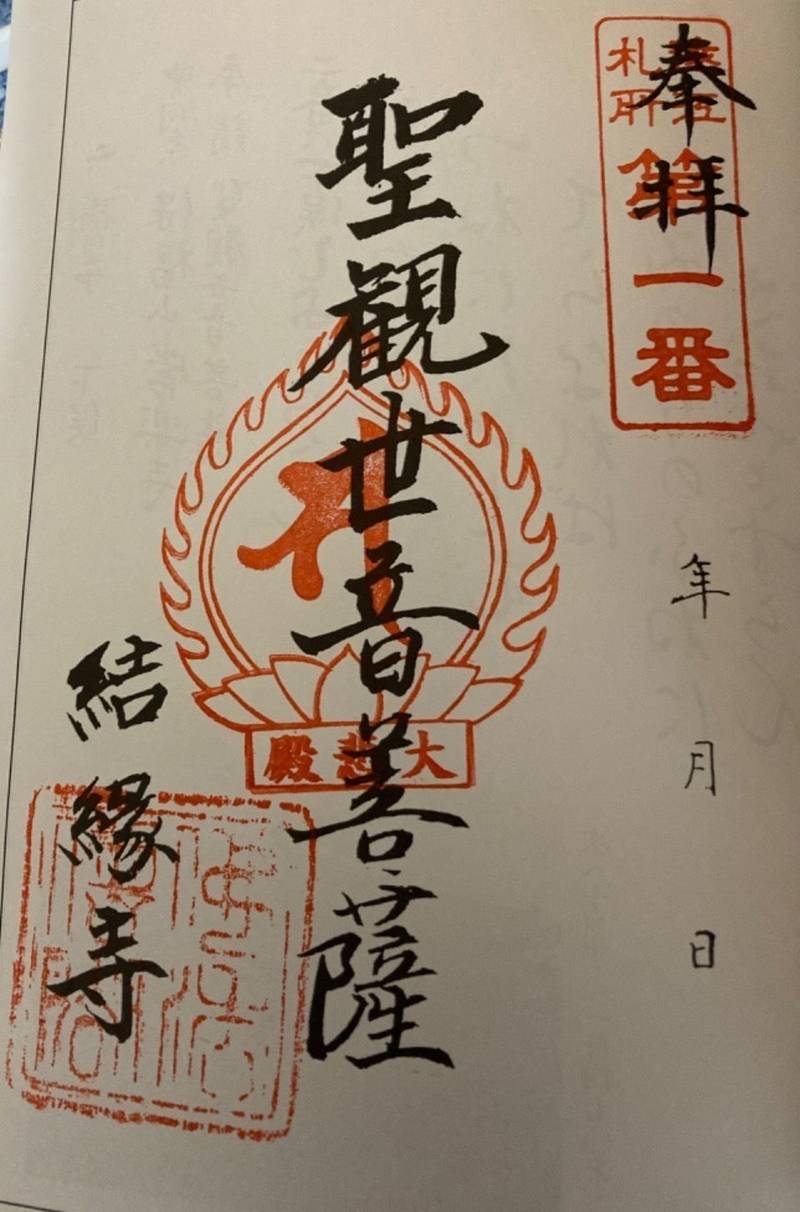 奉拝
札所
第一番
年 月 日
聖観世音菩薩
大悲殿
結縁寺